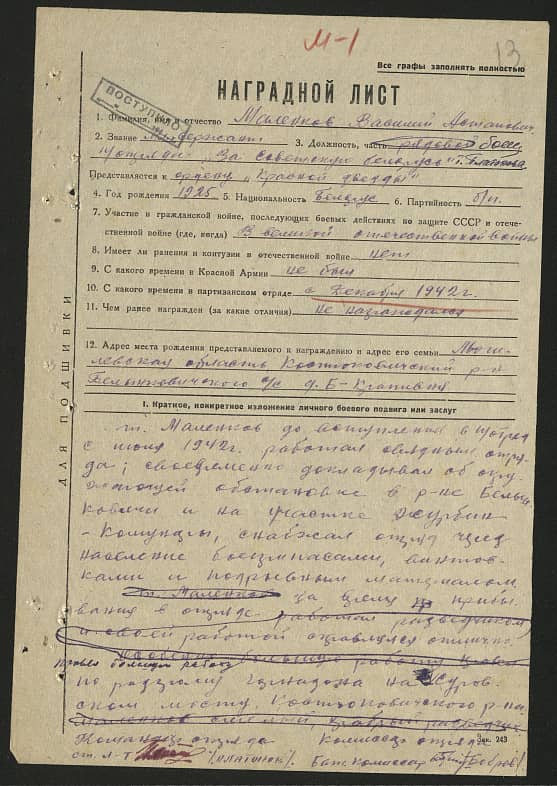 М-1
13
Все графы заполнять полностью
НАГРАДНОЙ ЛИСТ
ПОСТУПИЛО
1. Фамилия, имя и отчество Маленков Василий
2. Звание мл. сержант 3. Должность, часть рядовой боец
"За советскую беларусь"
Представляется к ордену "Красной звезды"
4. Год рождения 1925 5. Национальность Беларус 6. Партийность б/п.
7. Участие в гражданской войне, последующих боевых действиях по защите СССР и отече-
ственной войне (где, когда) В великой отечественной войны
8. Имеет ли ранения и контузии в отечественной войне нет
9. С какого времени в Красной Армии не был
10. С какого времени в партизанском отряде с Декабря 1942г.
11. Чем ранее награжден (за какие отличия) не награждался
12. Адрес места рождения представляемого к награждению и адрес его семьи Моги-
левская область Костюковичский р-н
с/с д. Б-Крапивня
ДЛЯ ПОДШИВКИ
I. Краткое, конкретное изложение личного боевого подвига или заслуг
т. Маленков до вступления в п/отряд
с июля 1942г. работал связным отря-
да; своевременно докладывал об окру-
жающей обстановке в р-не Белын-
ковичи и на участке Журбин
- Комунары, снабжал отряд через
население боеприпасами, винтов-
ками и подрывным материалом.
т. Маленков за время прибы
вания в отряде работал разведчиком
и своей работой справлялся отлично.
большую работу
провел большую работу
по разгрому гарнизона на Журов-
ском мосту, Костюковичского р-на.
Маленков смелый, храбрый разведчик
Командир отряда Комиссар отряда
ст. л-т (Платонов). Бат. Комиссар (Бобров)
Зак. 243